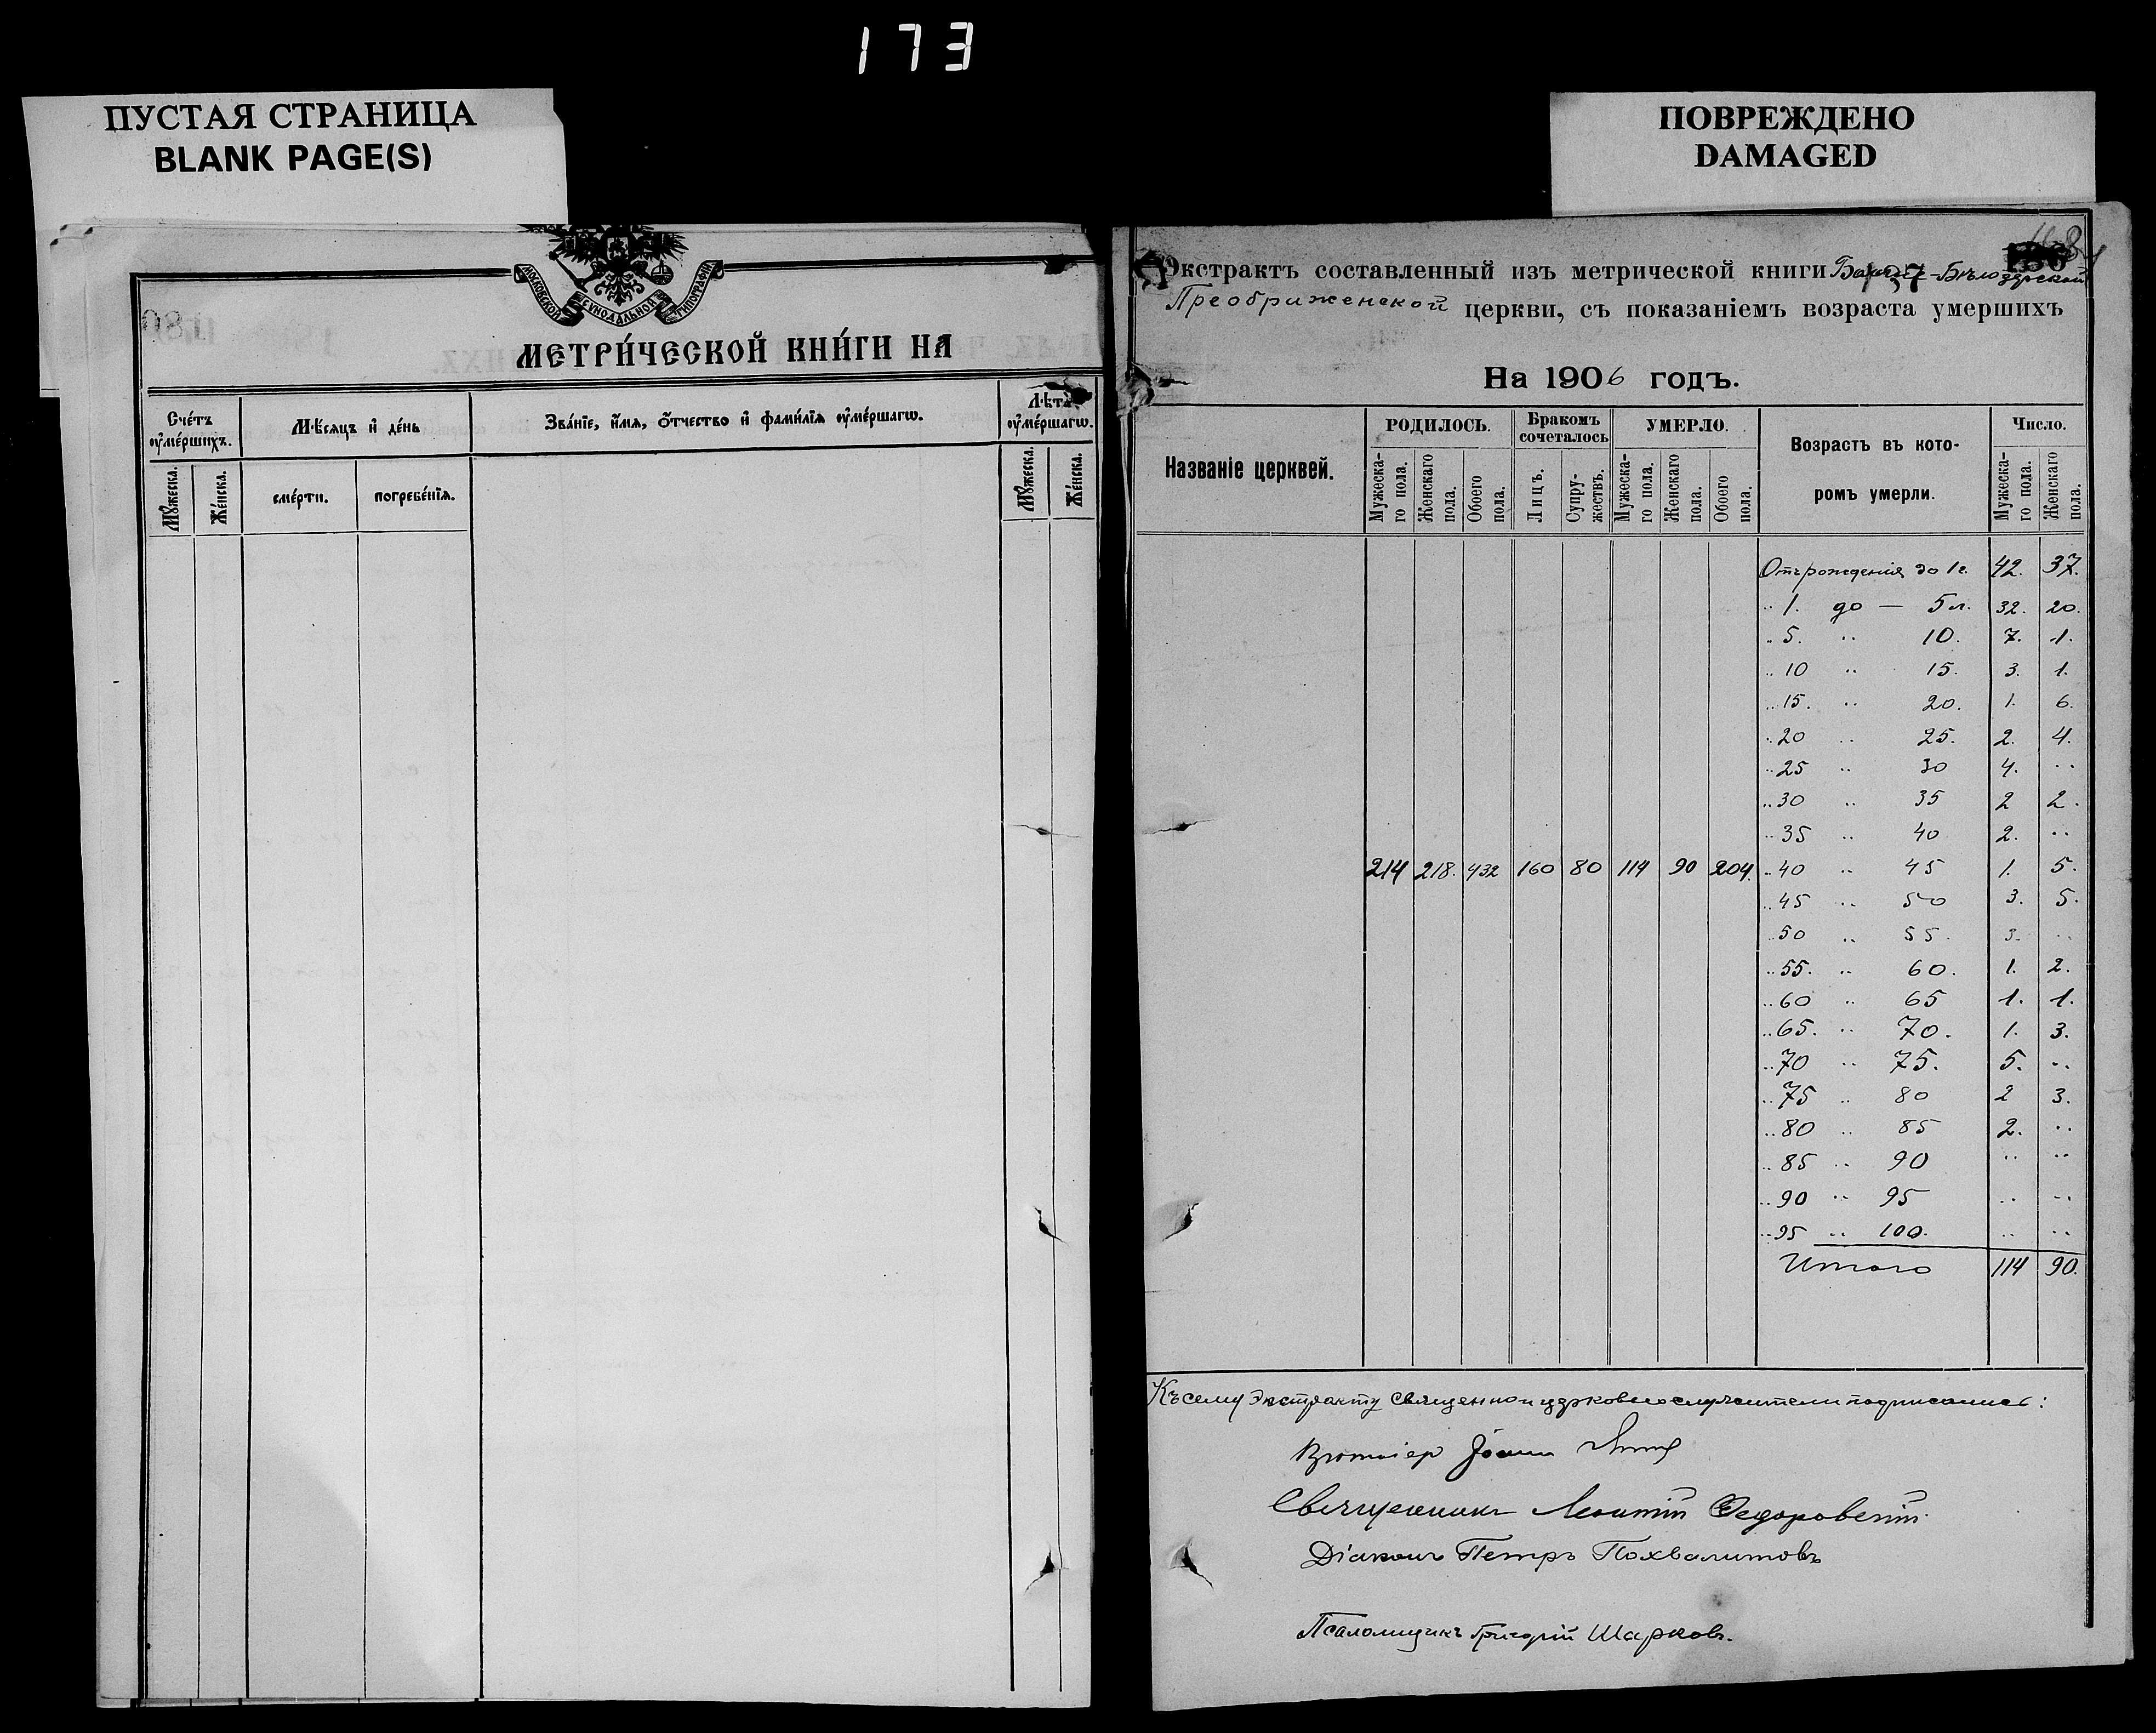 173
ПУСТАЯ СТРАНИЦА
BLANK PAGE(S)
ПОВРЕЖДЕНО
DAMAGED
МОСКОВСКОЙ СѴНОДАЛЬНОЙ ТИПОГРАФІИ
МЕТРИ́ЧЕСКОЙ КНИ́ГИ НА
Сче́тъ ᲂу҆ме́ршихъ.
Мѣ́сяцъ и҆ де́нь
Зва́нїе, и҆́мѧ, ѻ҆́тчество и҆ фами́лїѧ ᲂу҆ме́ршагѡ.
Лѣ́тъ ᲂу҆ме́ршагѡ.
Мꙋ́жеска.
Же́нска.
сме́рти.
погребе́нїѧ.
Мꙋ́жеска.
Же́нска.
Экстрактъ составленный изъ метрической книги -Бѣлозерской
Преображенской церкви, съ показаніемъ возраста умершихъ
На 1906 годъ.
Названіе церквей.
РОДИЛОСЬ.
Бракомъ сочеталось
УМЕРЛО.
Возрастъ въ кото-
ромъ умерли.
Число.
Мужеска-го пола.
Женскаго пола.
Обоего пола.
Лицъ.
Супру-жествъ.
Мужеска-го пола.
Женскаго пола.
Обоего пола.
Мужеска-го пола.
Женскаго пола.
Отъ рожденія до 1 г. 42. 37.
„ 1. до — 5 л. 32. 20.
„ 5. „ 10. 7. 1.
„ 10 „ 15. 3. 1.
„ 15. „ 20. 1. 6.
„ 20 „ 25. 2. 4.
„ 25 „ 30 4. „
„ 30 „ 35 2 2.
„ 35 „ 40 2. „
214 218. 432 160 80 114 90 204. „ 40 „ 45 1. 5.
„ 45 „ 50 3. 5.
„ 50 „ 55. 3. „
„ 55. „ 60. 1. 2.
„ 60 „ 65 1. 1.
„ 65. „ 70. 1. 3.
„ 70 „ 75. 5. „
„ 75 „ 80 2 3.
„ 80 „ 85 2. „
„ 85 „ 90 „ „
„ 90 „ 95 „ „
„ 95 „ 100. „ „
Итого 114 90.
Къ сему экстракту священно и церковнослужители подписались:
Іоаннъ
Священникъ Леонтій Федоровскій
Діаконъ Петръ Похвалитовъ
Псаломщикъ Григорій Шарковъ.